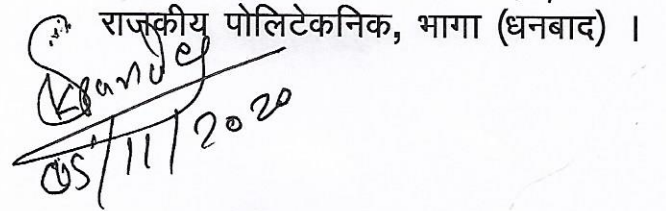 राजकीय पोलिटेकनिक, भागा (धनबाद) ।
05/11/2020